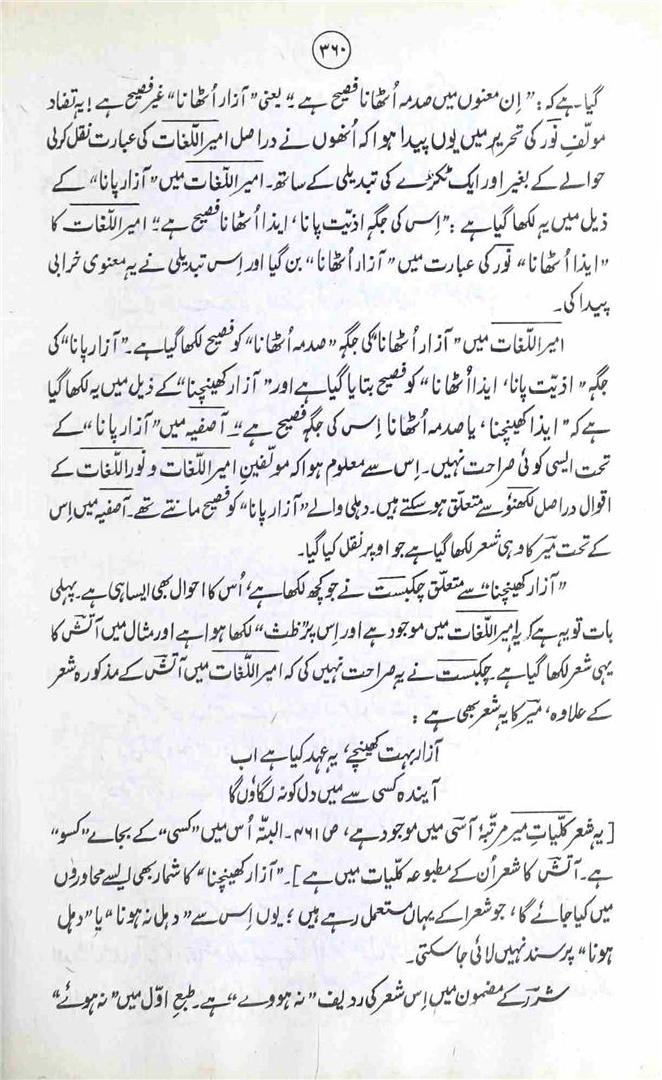 ۳۶۰
گیا ہے کہ: "اِن معنوں میں صدمہ اُٹھانا فصیح ہے" یعنی "آزار اُٹھانا" غیر فصیح ہے! یہ تضاد
مولفِ نور کی تحریر میں یوں پیدا ہوا کہ اُنھوں نے دراصل امیر اللّغات کی عبارت نقل کرلی
حوالے کے بغیر اور ایک ٹکڑے کی تبدیلی کے ساتھ۔ امیر اللّغات میں "آزار پانا" کے
ذیل میں یہ لکھا گیا ہے: "اِس کی جگہ اذیّت پانا، ایذا اُٹھانا فصیح ہے" امیر اللّغات کا
"ایذا اُٹھانا" نور کی عبارت میں "آزار اُٹھانا" بن گیا اور اِس تبدیلی نے یہ معنوی خرابی
پیدا کی۔
امیر اللّغات میں "آزار اُٹھانا" کی جگہ "صدمہ اُٹھانا" کو فصیح لکھا گیا ہے۔ "آزار پانا" کی
جگہ "اذیّت پانا، ایذا اُٹھانا" کو فصیح بتایا گیا ہے اور "آزار کھینچنا" کے ذیل میں یہ لکھا گیا
ہے کہ "ایذا کھینچنا، یا صدمہ اُٹھانا اِس کی جگہ فصیح ہے"۔ آصفیہ میں "آزار پانا" کے
تحت ایسی کوئی صراحت نہیں۔ اِس سے معلوم ہوا کہ مولّفینِ امیر اللّغات و نور اللّغات کے
اقوال دراصل لکھنؤ سے متعلّق ہو سکتے ہیں۔ دہلی والے "آزار پانا" کو فصیح مانتے تھے۔ آصفیہ میں اِس
کے تحت میر کا وہی شعر لکھا گیا ہے جو اوپر نقل کیا گیا۔
"آزار کھینچنا" سے متعلّق چکبست نے جو کچھ لکھا ہے، اُس کا احوال بھی ایسا ہی ہے۔ پہلی
بات تو یہ ہے کہ یہ امیر اللّغات میں موجود ہے اور اِس پر "ظث" لکھا ہوا ہے اور مثال میں آتش کا
یہی شعر لکھا گیا ہے۔ چکبست نے یہ صراحت نہیں کی کہ امیر اللّغات میں آتش کے مذکورہ شعر
کے علاوہ، میر کا یہ شعر بھی ہے:
آزار بہت کھینچے، یہ عہد کیا ہے اب
آیندہ کسی سے میں دل کو نہ لگاؤں گا
[یہ شعر کلّیاتِ میر مرتّبۂ آسی میں موجود ہے، ص ۴۶۱۔ البتّہ اُس میں "کسی" کے بجاے "کسو"
ہے۔ آتش کا شعر اُن کے مطبوعہ کلّیات میں ہے]۔ "آزار کھینچنا" کا شمار بھی ایسے محاوروں
میں کیا جائے گا، جو شعرا کے یہاں مستعمل رہے ہیں؛ یوں اِس سے "دہل نہ ہونا" یا "دہل
ہونا" پر سند نہیں لائی جاسکتی۔
شرر کے مضمون میں اِس شعر کی ردیف "نہ ہووے" ہے۔ طبعِ اوّل میں "نہ ہوئے"